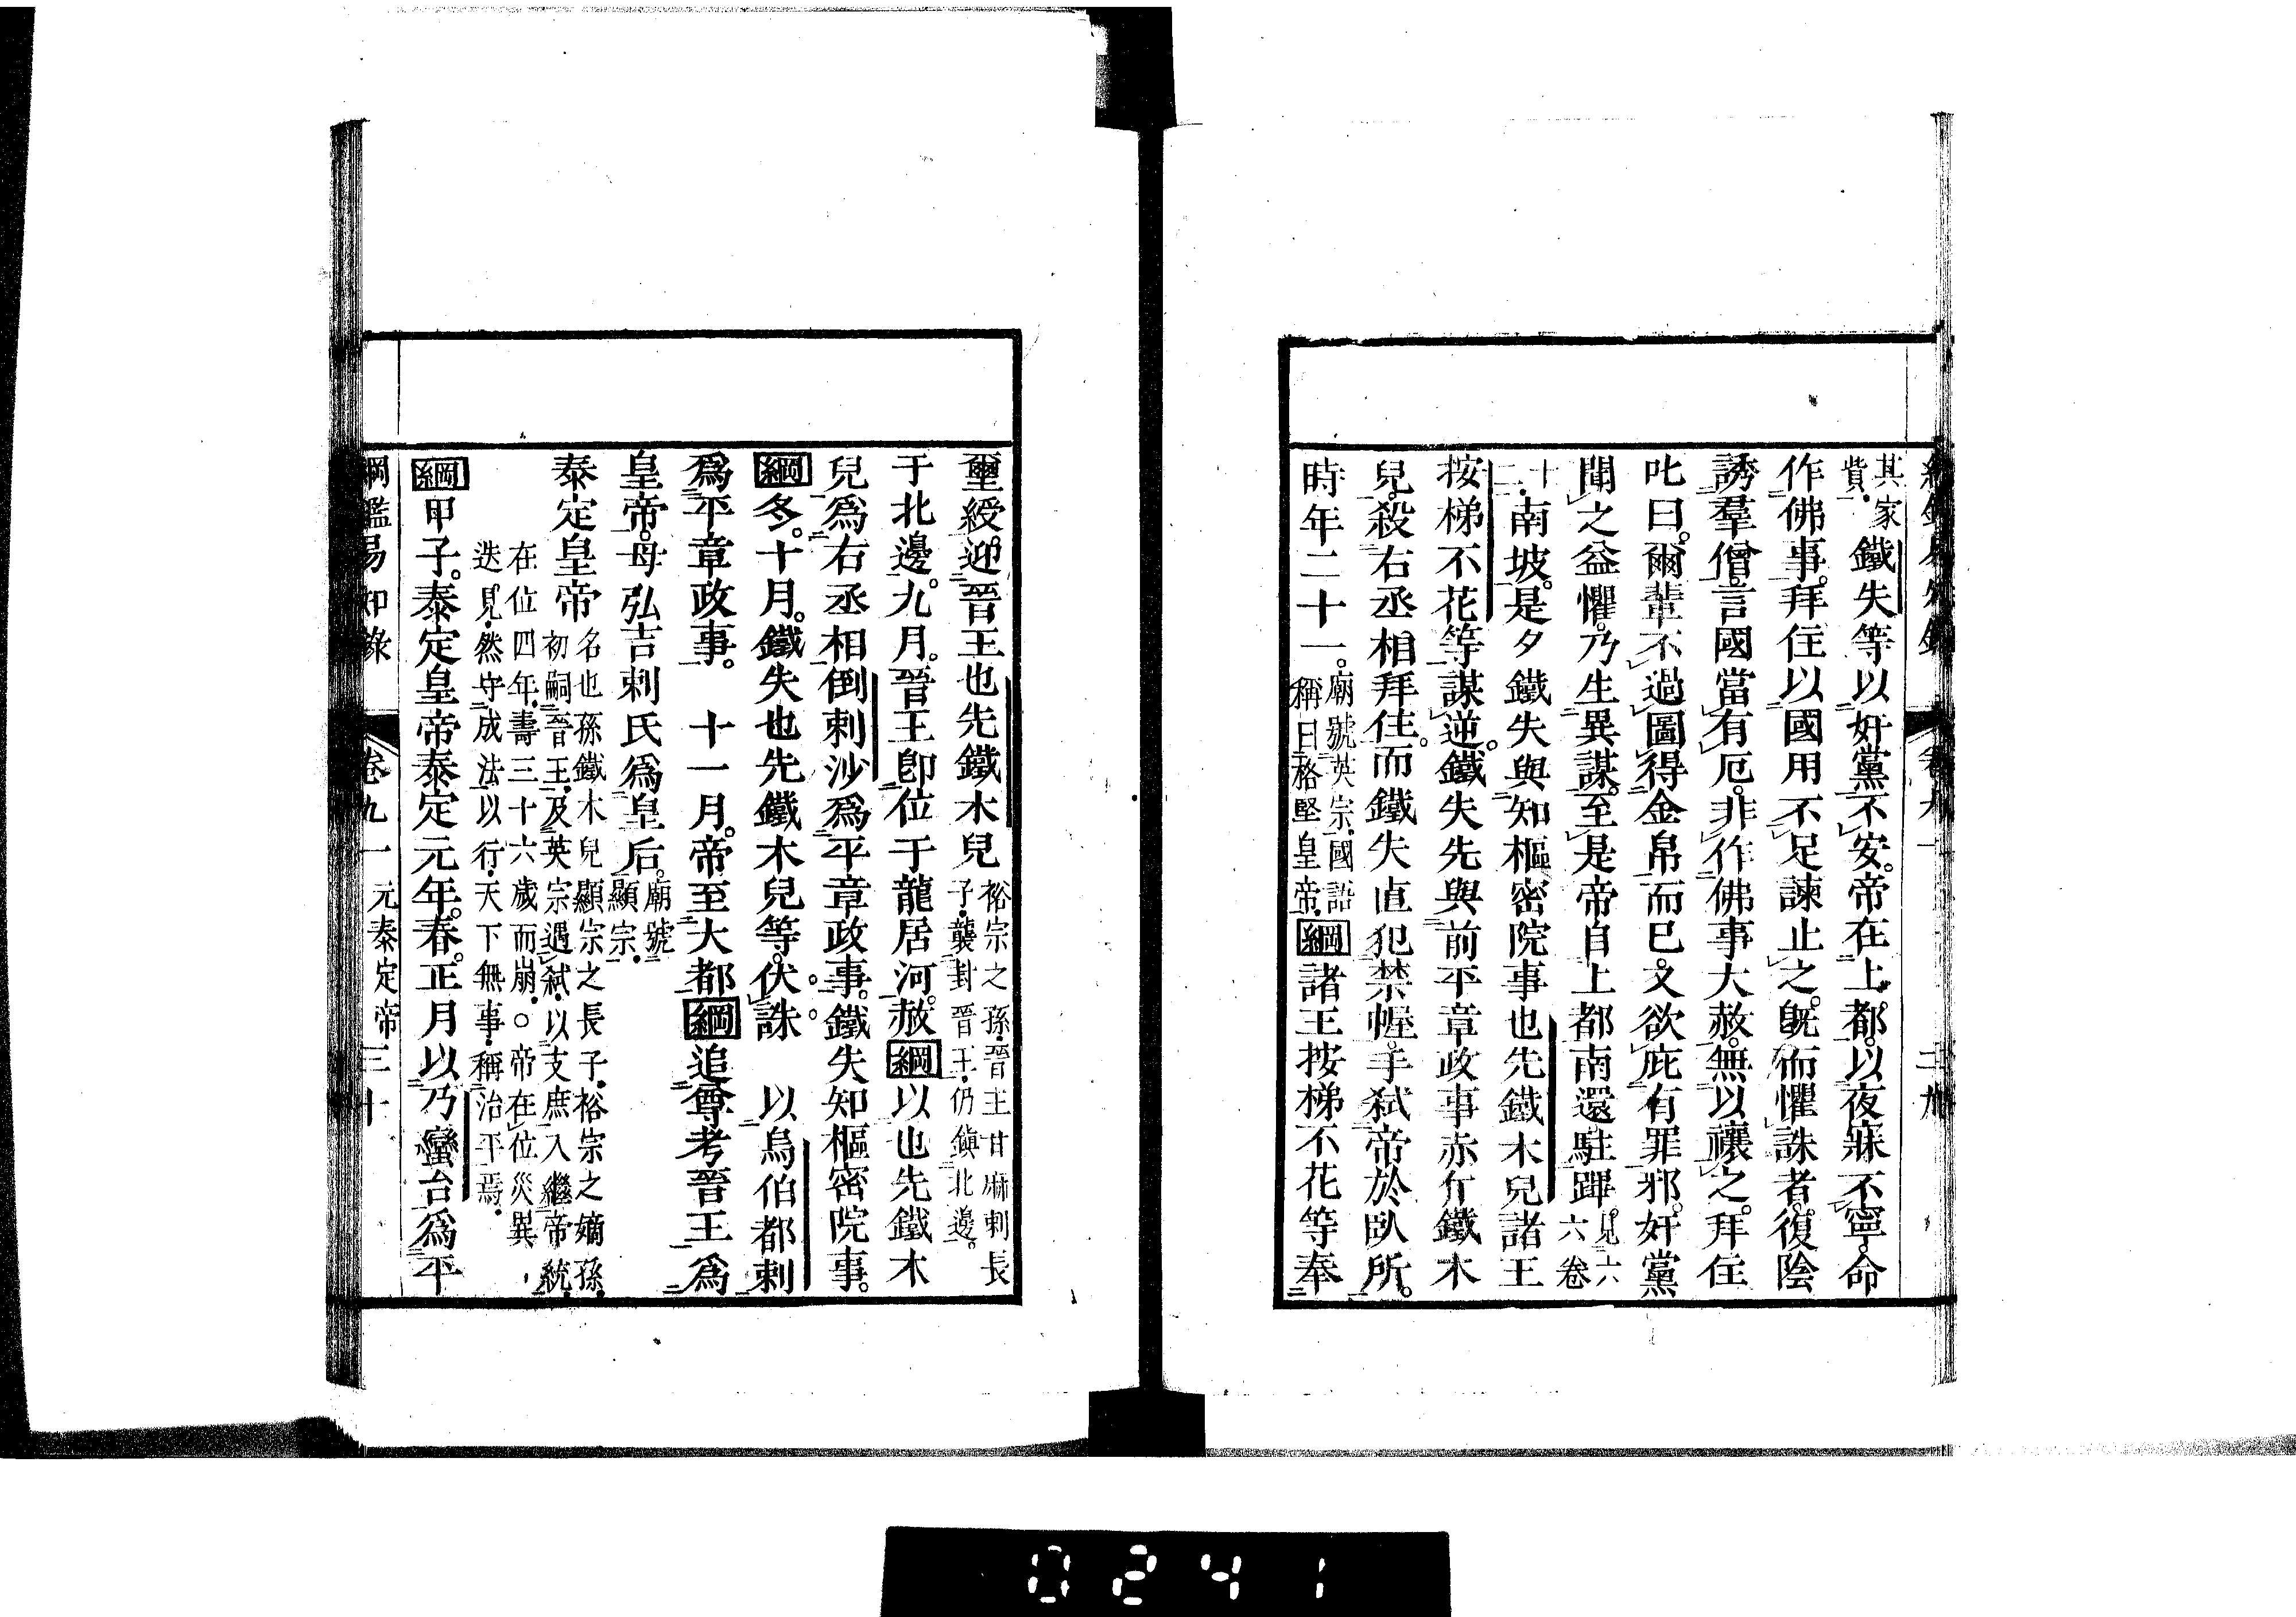 其家
貲。鐵失等以奸黨不安。帝在上都。以夜寐不寧。命
作佛事。拜住以國用不足諫止之。旣而懼誅者。復陰
誘羣僧。言國當有厄。非作佛事大赦。無以禳之。拜住
叱曰。爾輩不過圖得金帛而已。又欲庇有罪邪。奸黨
聞之益懼。乃生異謀。至是帝自上都南還駐蹕。見六
六卷
十
二。南坡。是夕鐵失與知樞密院事也先鐵木兒諸王
按梯不花等謀逆。鐵失先與前平章政事赤斤鐵木
兒。殺右丞相拜住。而鐵失直犯禁幄。手弒帝於臥所。
時年二十一。廟號英宗。國語
稱曰格堅皇帝。綱諸王按梯不花等奉
璽綬。迎晉王也先鐵木兒裕宗之孫。晉王甘麻剌長
子。襲封晉王。仍鎭北邊。
于北邊。九月。晉王卽位于龍居河。赦綱以也先鐵木
兒爲右丞相倒剌沙爲平章政事。鐵失知樞密院事。
綱冬。十月。鐵失也先鐵木兒等。伏誅 以烏伯都剌
爲平章政事。 十一月。帝至大都綱追尊考晉王爲
皇帝。母弘吉剌氏爲皇后。廟號
顯宗。
泰定皇帝名也孫鐵木兒顯宗之長子。裕宗之嫡孫。
初嗣晉王。及英宗遇弒。以支庶入繼帝統。
在位四年。壽三十六歲而崩。○帝在位災異
迭見。然守成法以行。天下無事。稱治平焉。
綱甲子。泰定皇帝泰定元年。春。正月以乃蠻台爲平
綱鑑易知錄 卷九一 元泰定帝 三十
0241